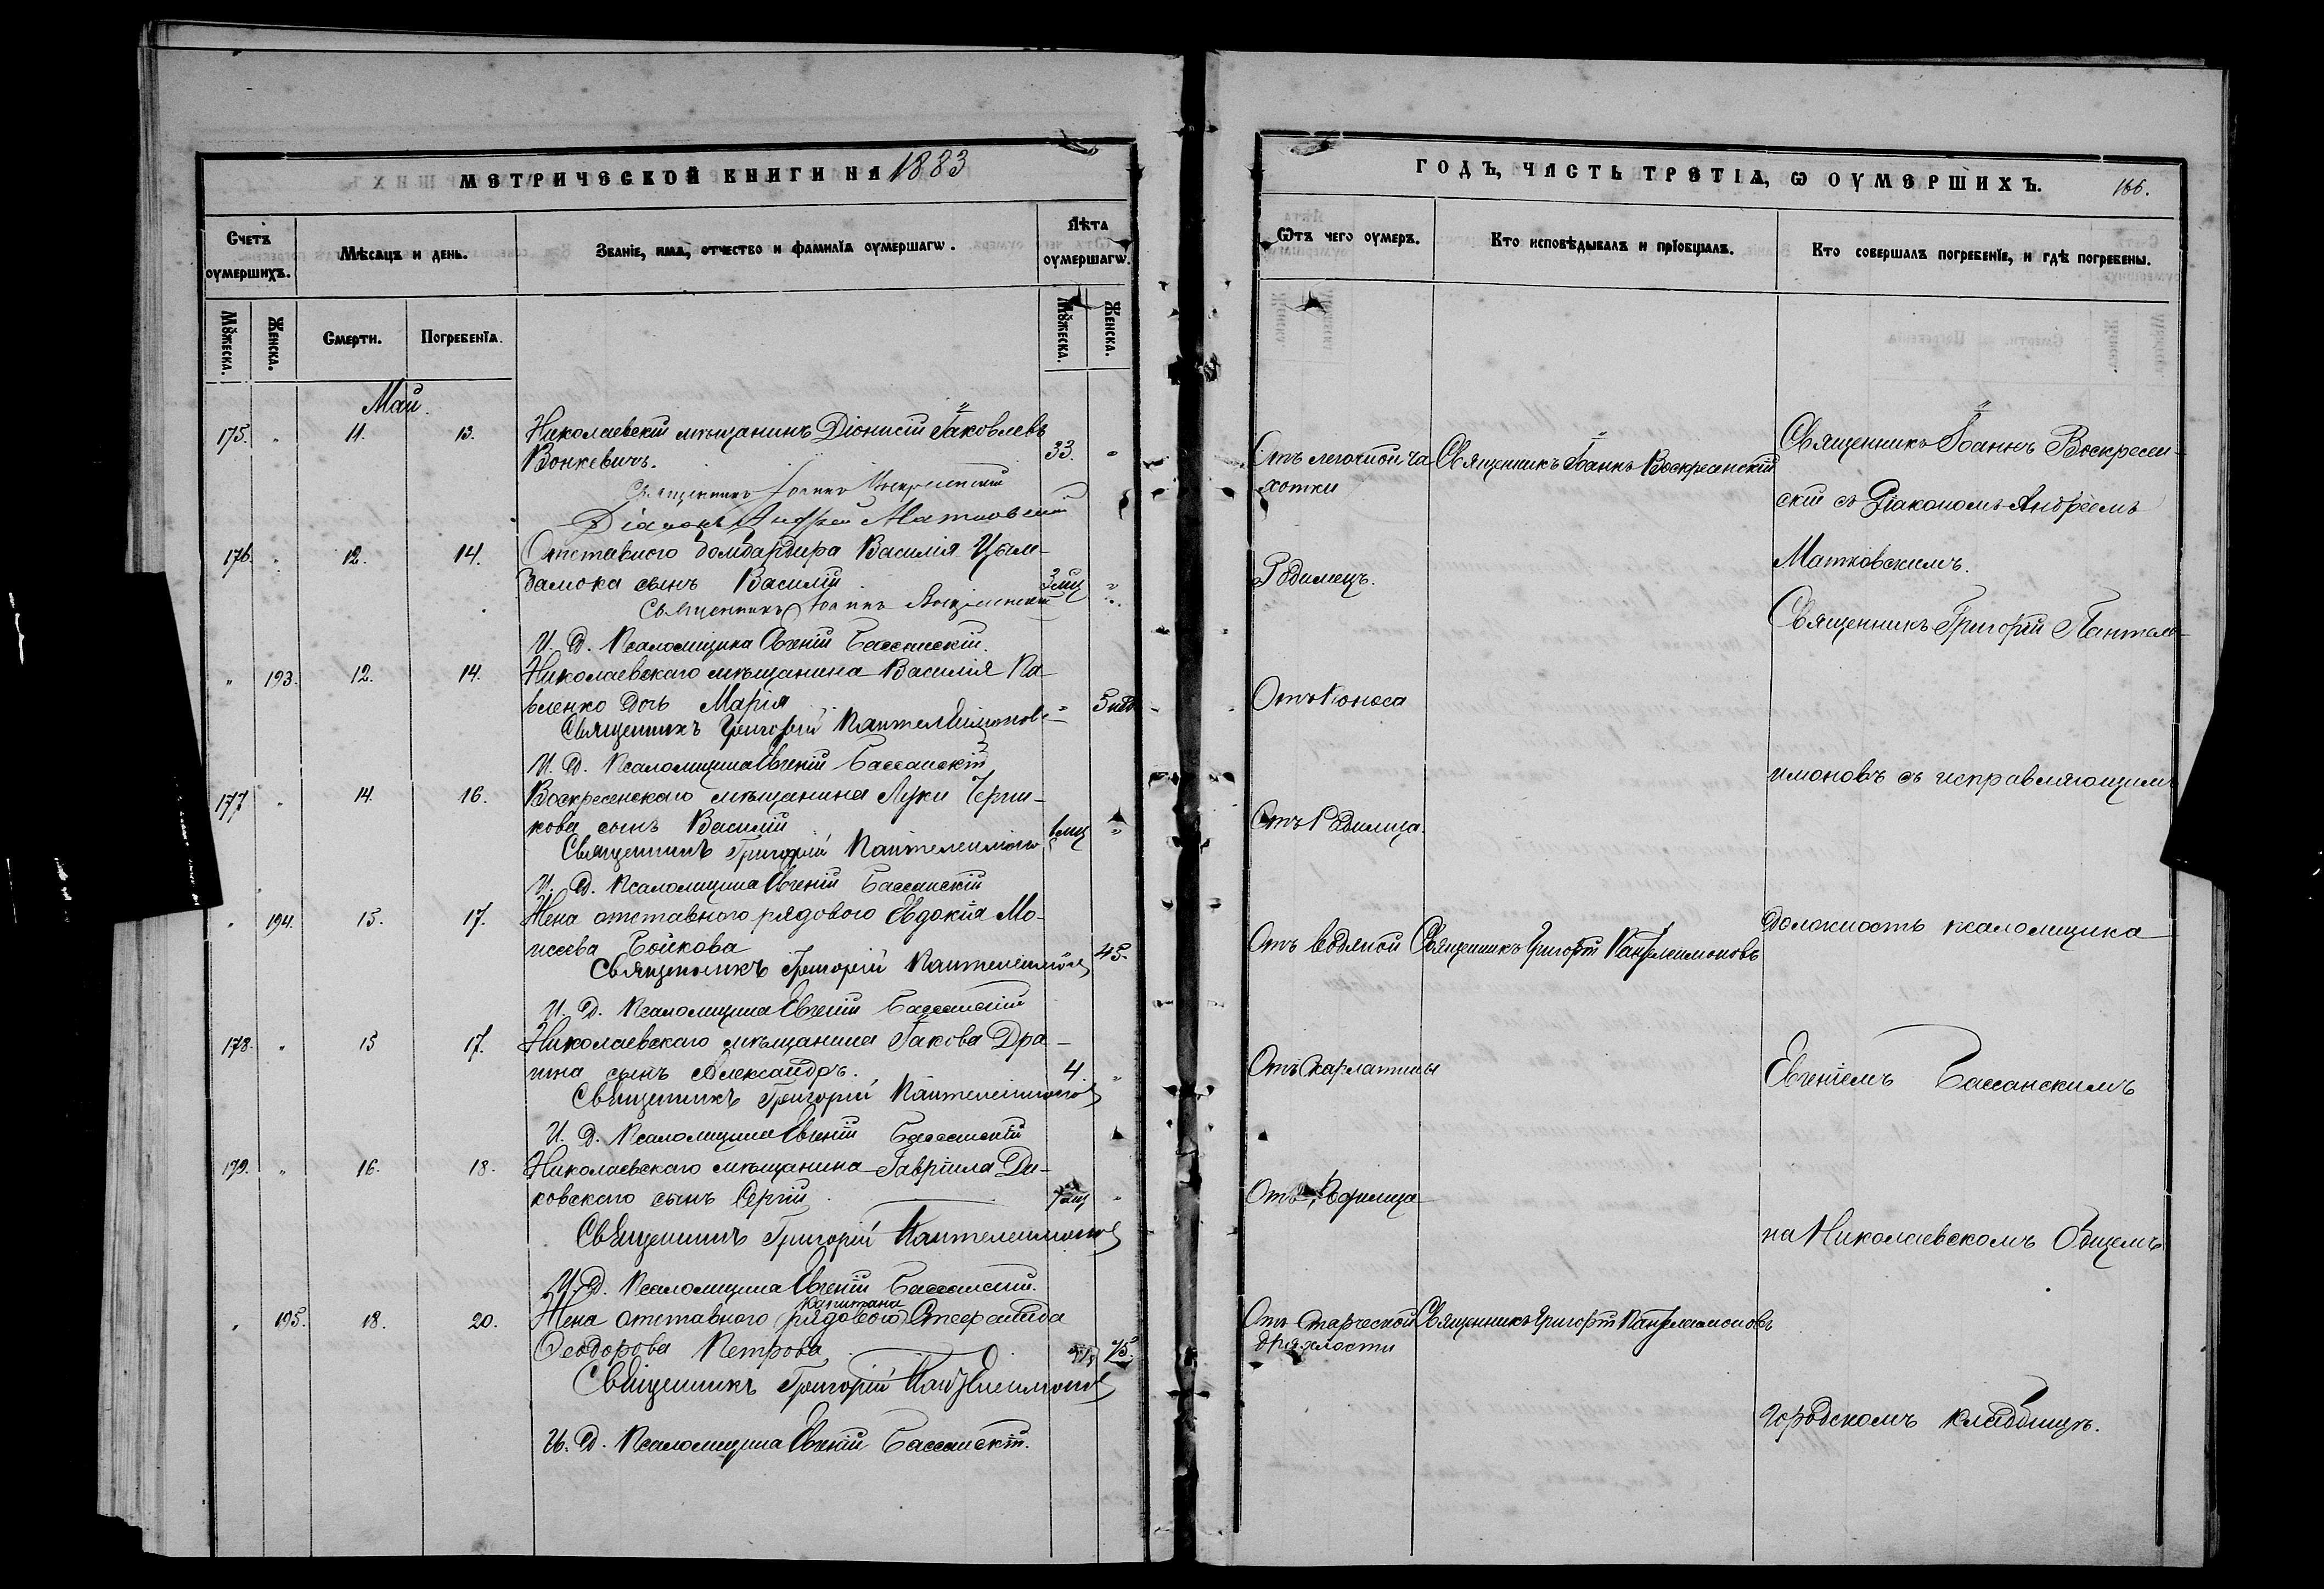 МЕТРИЧЕСКОЙ КНИГИ НА 1883
Счетъ оумершихъ.
Мѣсяцъ и день.
Званіе, имя, отчество и фамилія оумершагѡ.
Лѣта оумершагѡ.
Мꙋжеска.
Женска.
Смерти.
Погребенія.
Мꙋжеска.
Женска.
Май.
175. " 11. 13. Николаевскій мѣщанинъ Діонисій Іаковлевъ
Вонкевичъ. 33. "
Священникъ Іоаннъ Воскресенскій
Діаконъ Андрей Матковскій
176. " 12. 14. Отставного бомбардира Василія Цым-
замока сынъ Василій 3 мц "
Священникъ Іоаннъ Воскресенскій
И. Д. Псаломщика Евгеній Бассанскій.
" 193. 12. 14. Николаевскаго мѣщанина Василія Па-
вленко дочь Марія " 5 нед.
Священникъ Григорій Пантелеимоновъ
И. Д. Псаломщика Евгеній Бассанскій
177 " 14. 16. Воскресенскаго мѣщанина Луки
кова сынъ Василій 1 мц "
Священникъ Григорій Пантелеимоновъ
И. Д. Псаломщика Евгеній Бассанскій
" 194. 15. 17. Жена отставного рядового Евдокія Мо-
исеева Бойкова 45.
Священникъ Григорій Пантелеимоновъ
И. Д. Псаломщика Евгеній Бассанскій
178. " 15 17. Николаевскаго мѣщанина Іакова Дра-
гина сынъ Александръ. 4. "
Священникъ Григорій Пантелеимоновъ
И. Д. Псаломщика Евгеній Бассанскій
179. " 16. 18. Николаевскаго мѣщанина Гавріила Ди-
ковскаго сынъ Сергій мц "
Священникъ Григорій Пантелеимоновъ
И. Д. Псаломщика Евгеній Бассанскій.
капитана
" 195. 18. 20. Жена отставного (рядового) Стефанида
Ѳеодорова Петрова 75.
Священникъ Григорій Пантелеимоновъ
И. Д. Псаломщика Евгеній Бассанскій.
ГОДЪ, ЧАСТЬ ТРЕТІЯ, Ѡ ОУМЕРШИХЪ. 166.
Ѿтъ чего оумеръ.
Кто исповѣдывалъ и пріобщалъ.
Кто совершалъ погребеніе, и гдѣ погребены.
Отъ легочной ча-
хотки
Родимецъ.
Отъ Поноса
Отъ Родимца.
Отъ водяной
Отъ Скарлатины
Отъ Родимца
Отъ Старческой
дряхлости
Священникъ Іоаннъ Воскресенскій
Священникъ Григорій Пантелеимоновъ
Священникъ Григорій Пантелеимоновъ
Священникъ Іоаннъ Воскресен-
скій съ Діакономъ Андреемъ
Матковскимъ.
Священникъ Григорій Пантеле-
имоновъ съ исправляющимъ
должность псаломщика
Евгеніемъ Бассанскимъ
на Николаевскомъ Общемъ
Городскомъ кладбищѣ.